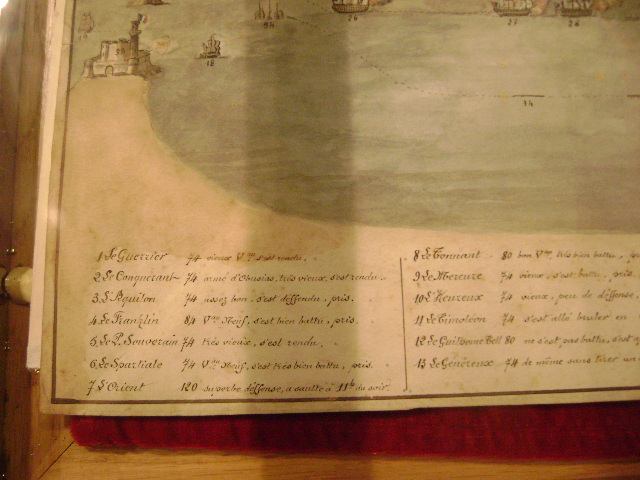 18
24
26
25
26
34
1 Le Guerrier 74 vieux Vau s'est rendu.
2 Le Conquerant 74 armé d'Obusias, très vieux, s'est rendu.
3 L'Aquilon 74 assez bon, s'est deffendu, pris.
4 Le Franklin 84 Vau Neuf, s'est bien battu, pris.
5 Le P. Souverain 74 très vieux, s'est rendu.
6 Le Spartiate 74 Vau Neuf, s'est très bien battu, pris.
7 L'Orient 120 superbe deffense, a sauté à 11h du soir.
8 Le Tonnant 80 bon Vau, très bien battu,
9 Le Mercure 74 vieux, s'est battu, pris.
10 L'Heureux 74 vieux, peu de deffense,
11 Le Timoléon 74 s'est allé bruler en
12 Le Guillaume Tell 80 ne s'est pas battu, s'est
13 Le Généreux 74 de même sans tirer un